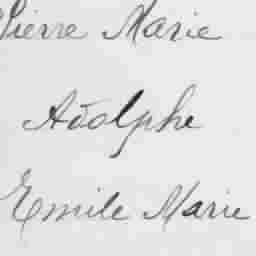 Pierre Marie
Adolphe
Emile Marie